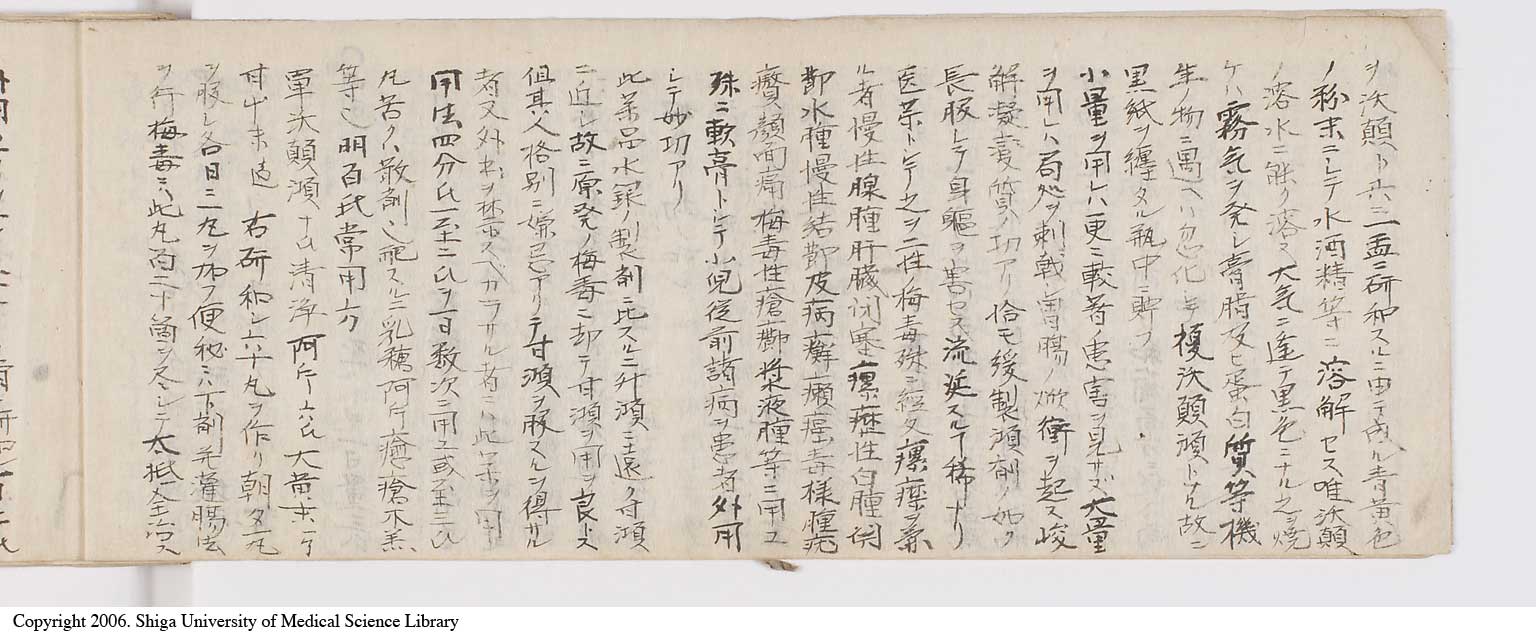 ヲ沃顛ト六三一盃ニ研和スルニ由テ成ル青黄色
ノ粉末ニシテ水酒精等ニ溶解セス唯沃顛
ノ溶水ニ能ク溶ス大気ニ逢テ黒色ニナル之ヲ焼
ケハ霧気ヲ発シ膏脂及ヒ蛋白質等機
生ノ物ニ遇ヘハ忽化シテ複沃顛澒トナル故ニ
黒紙ヲ纏タル瓶中ニ貯フ
小量ヲ用レハ更ニ較著ノ患害ヲ見サズ大量
ヲ用レハ局処ヲ刺戟シ胃腸ノ焮衝ヲ起ス峻
解凝変質ノ功アリ恰モ緩製澒剤ノ如ク
長服シテ身軀ヲ害セス流涎スルヿ稀ナリ
医薬トシテ之ヲ二性梅毒殊ニ経久瘰癧ヲ兼
ル者慢性腺腫肝臓閉塞瘰癧性白腫関
節水腫慢性結節皮病癬癩癌毒様腫瘍
贅顔面痛梅毒性瘡癤漿液腫等ニ用ユ
殊ニ軟膏トシテ小児従前諸病ヲ患者外用
シテ妙功アリ
此薬品水銀ノ製剤ニ比スルニ升澒ニ遠ク甘澒
ニ近シ故ニ原発ノ梅毒ニ却テ甘澒ヲ用ヲ良トス
但其人格別ニ嫌忌アリテ甘澒ヲ服スルヿ得サル
者又外用ヲ禁スベカラサル者ニハ此薬ヲ用
用法四分氏一至二氏ヲ一日数次ニ用ユ或至三氏
凡苦ク散剤ニ配スルニ乳糖阿片癒瘡木羔
等也明百氏常用方
単沃顛澒十氏清浄阿片六氏大黄末二ヲ
甘草末適 右研和シ六十丸ヲ作リ朝夕一丸
ヲ服シ各日ニ一丸ヲ加フ便秘ニハ下剤并灌腸法
ヲ行梅毒ニハ此丸百二十箇ヲ尽シテ大抵全治ス
Copyright 2006. Shiga University of Medical Science Library